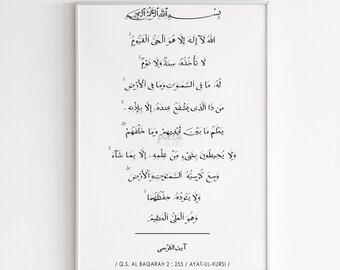 بِسْمِ اللَّهِ الرَّحْمَٰنِ الرَّحِيمِ
اللَّهُ لَآ إِلَٰهَ إِلَّا هُوَ الْحَيُّ الْقَيُّومُ ۚ
لَا تَأْخُذُهُۥ سِنَةٌ وَلَا نَوْمٌ ۚ
لَّهُۥ مَا فِي السَّمَٰوَٰتِ وَمَا فِي الْأَرْضِ ۗ
مَن ذَا الَّذِي يَشْفَعُ عِندَهُۥٓ إِلَّا بِإِذْنِهِۦ ۚ
يَعْلَمُ مَا بَيْنَ أَيْدِيهِمْ وَمَا خَلْفَهُمْ ۖ
وَلَا يُحِيطُونَ بِشَيْءٍ مِّنْ عِلْمِهِۦٓ إِلَّا بِمَا شَآءَ ۚ
وَسِعَ كُرْسِيُّهُ السَّمَٰوَٰتِ وَالْأَرْضَ ۖ
وَلَا يَـُٔودُهُۥ حِفْظُهُمَا ۚ
وَهُوَ الْعَلِيُّ الْعَظِيمُ
آية الكرسي
/ Q.S. AL BAQARAH 2 : 255 / AYAT-UL-KURSI /